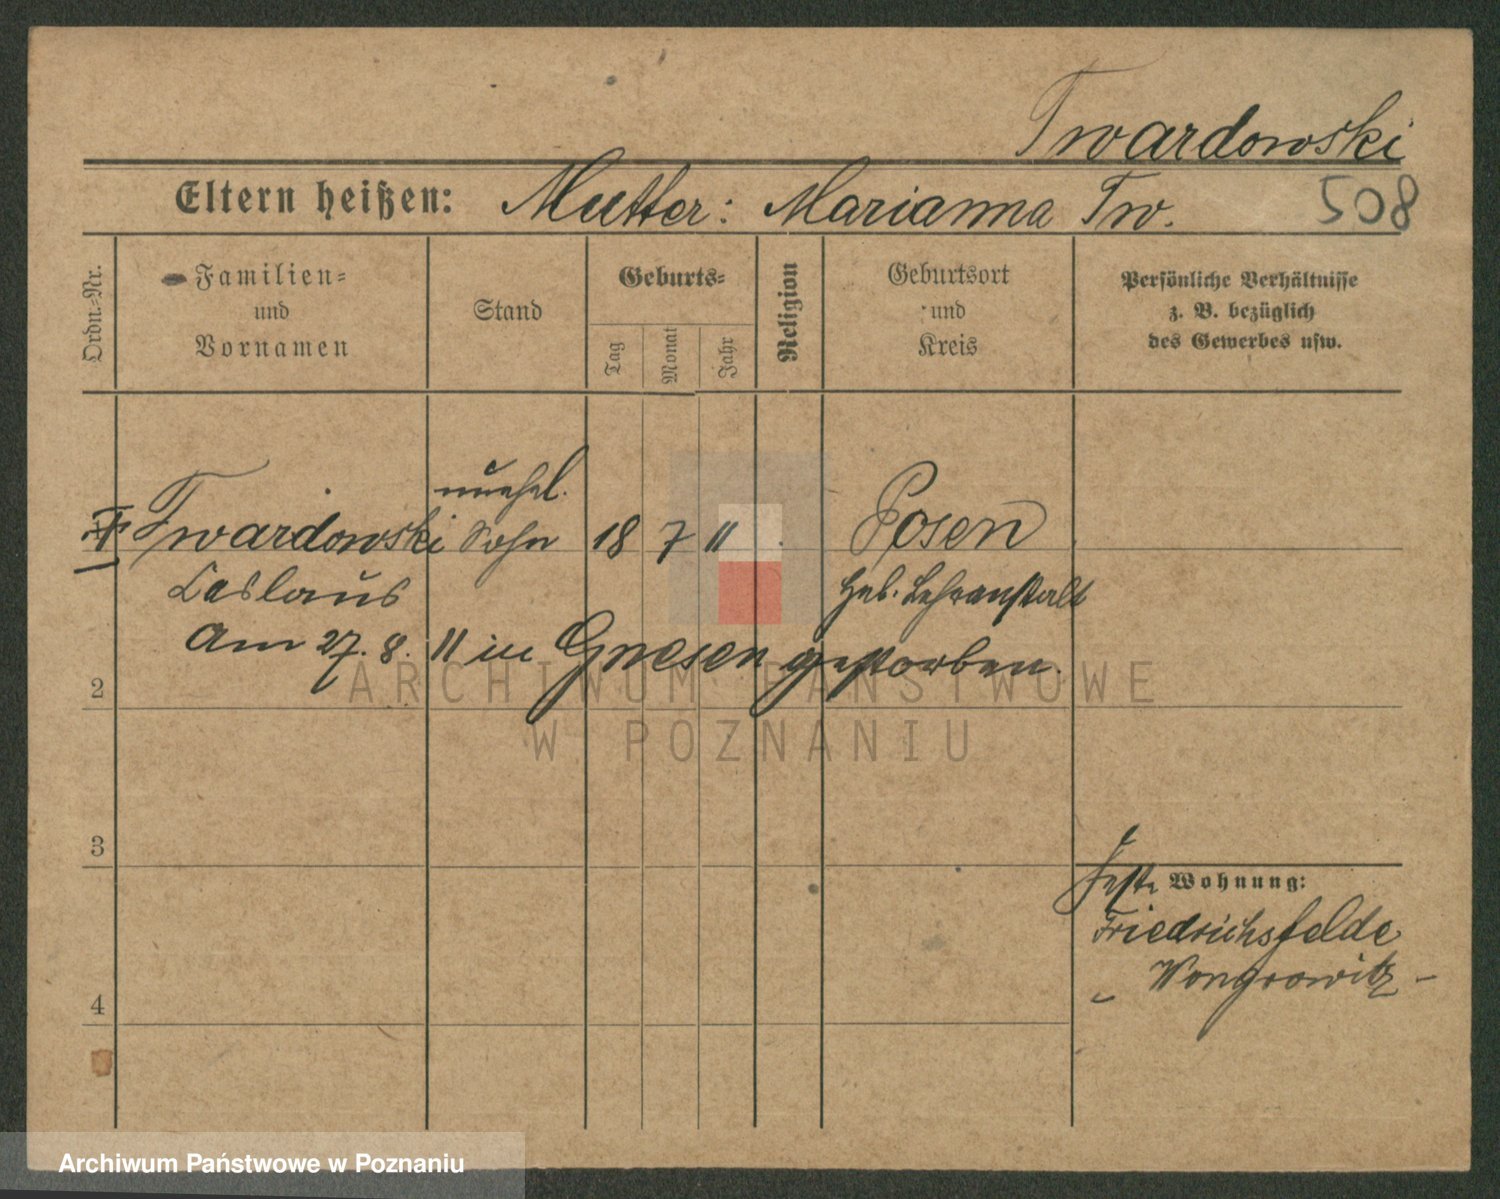 Twardowski
Eltern heißen: Mutter: Marianna Tw.
508
Ordn.-Nr.
Familien-
und
Vornamen
Stand
Geburts-
Tag
Monat
Jahr
Religion
Geburtsort
und
Kreis
Persönliche Verhältnisse
z. B. bezüglich
des Gewerbes usw.
unehel.
Twardowski Sohn 18 7 11 Posen
Ceslaus Heb. Lehranstalt
am 27. 8. 11 in Gnesen gestorben.
2
3
4
Feste Wohnung:
Friedrichsfelde
Wongrowitz
ARCHIWUM PAŃSTWOWE
W POZNANIU
Archiwum Państwowe w Poznaniu